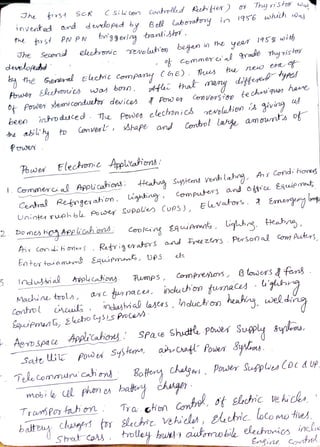 The first SCR (Silicon Controlled Rectifier) or Thyristor was
invented and developed by Bell Laboratory in 1956 which was
the first PNPN triggering transistor.
The second electronic revolution began in the year 1958 with
developed of commercial grade Thyristor
by the General Electric Company (GE). Thus the new era of
Power Electronics was born. After that many different types
of Power semiconductor devices & power conversion techniques have
been introduced. The Power electronics revolution is giving us
the ability to convert, shape and control large amounts of
Power.
Power Electronic Applications:
1. Commercial Applications: Heating systems ventilating, Air Conditioners
Central Refrigeration, Lighting, Computers and office Equipment,
Uninterruptible Power Supplies (UPS), Elevators, & Emergency lamps
2 Domestic Applications: Cooking Equipments, Lighting, Heating,
Air Conditioners, Refrigerators and Freezers, Personal Computers,
Entertainment Equipments, UPS etc
3 Industrial Applications: Pumps, compressors, Blowers & fans.
Machine tools, arc furnaces, induction furnaces, lighting
control circuits, industrial lasers, induction heating, welding
Equipments, Electrolysis Process
Aerospace Applications: Space Shuttle power supply systems,
Satellite power systems, aircraft Power Systems.
Telecommunications: Battery chargers, Power Supplies (DC & UPS
mobile cell phones battery charger.
Transportation: Traction Control of Electric Vehicles,
battery chargers for Electric vehicles, electric locomotives,
Street cars, trolley buses automobile electronics
Engine controls